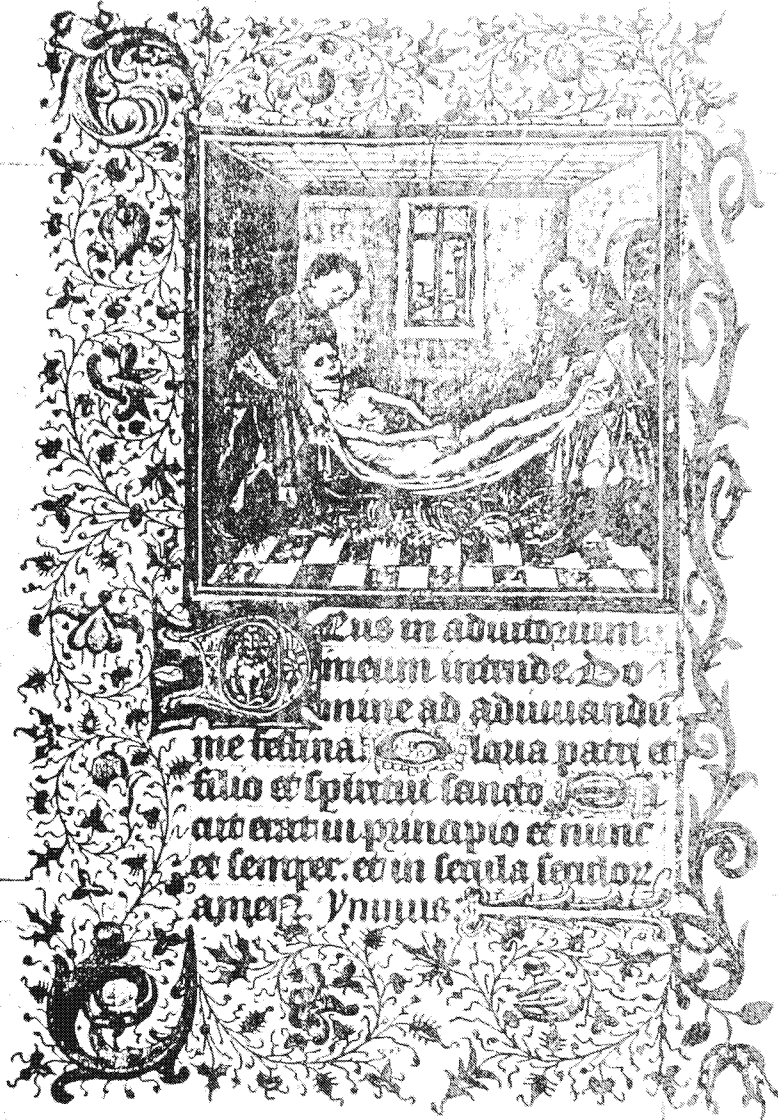 Deus in adiutorium
meum intende. Do
mine ad adiuuandū
me festina. Gloria patri et
filio et spiritui sancto S
icut erat in principio et nunc
et semper. et in secula seculor
amen. Ymnus